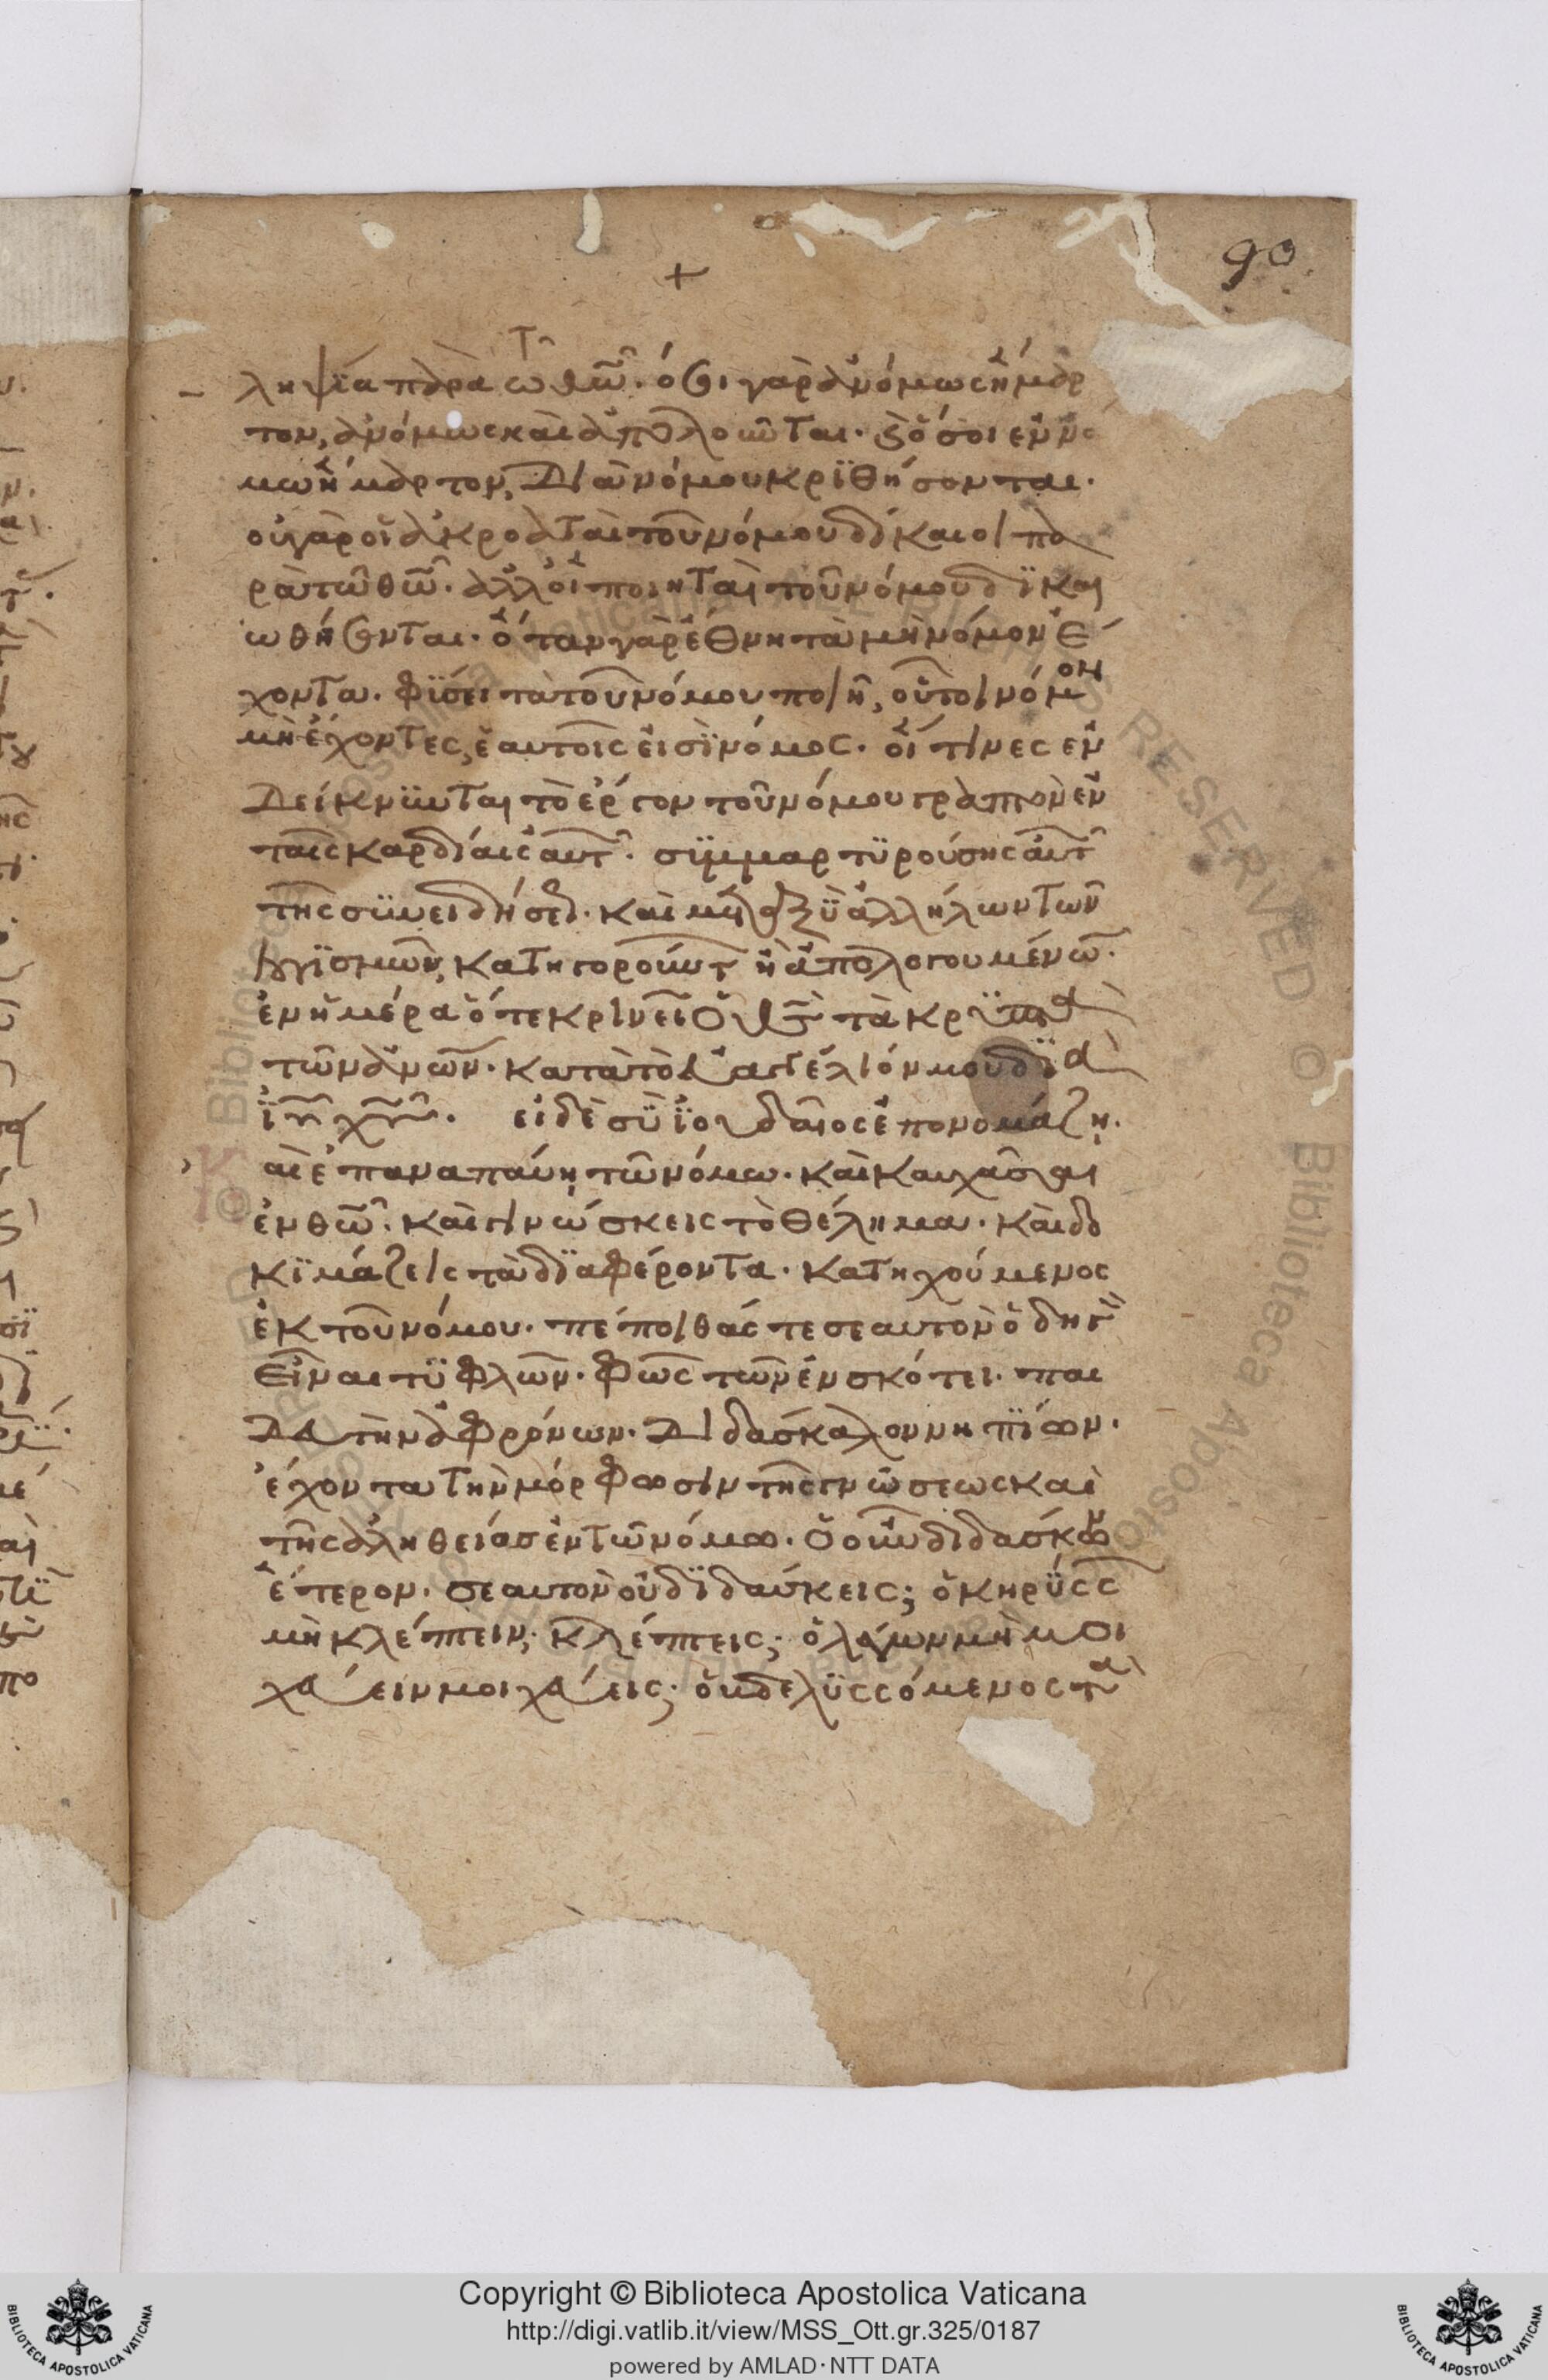 +
90
ληψία παρὰ τῶ θῶ. ὅσοι γὰρ ἀνόμως ἥμαρ
τον, ἀνόμως καὶ ἀπολοῦνται. καὶ ὅσοι ἐν νό
μω ἥμαρτον, διὰ νόμου κριθήσονται.
οὐ γὰρ οἱ ἀκροαταὶ τοῦ νόμου δίκαιοι πα
ρὰ τῶ θῶ. ἀλλ' οἱ ποιηταὶ τοῦ νόμου δϊκαι
ωθήσονται. ὅταν γὰρ ἔθνη τὰ μὴ νόμον ἔ
χοντα. φϊσει τὰ τοῦ νόμου ποιῆ, οὗτοι νόμον
μὴ ἔχοντες, ἑαυτοῖς εἰσὶ νόμος. οἵ τινες ἐν
δείκνϋνται τὸ ἔργον τοῦ νόμου γραπτὸν ἐν
ταῖς καρδίαις αὐτῶν. σϋμμαρτϋρούσης αὐτῶν
τῆς σϋνειδήσεως. καὶ μεταξϋ ἀλλήλων τῶν
λογϊσμῶν, κατηγορούντων ἢ ἀπολογουμένων.
ἐν ἡμέρα ὅτε κρινεῖ ὁ θς τὰ κρϋπτὰ
τῶν ἀνῶν. κατὰ τὸ εὐαγγέλιόν μου δϊὰ
ἰυ χυ. εἰ δὲ σϋ ἰουδαῖος ἐπονομάζη.
καὶ ἐπαναπαύη τῶ νόμω. καὶ καυχᾶσαι
ἐν θῶ. καὶ γινώσκεις τὸ θέλημα. καὶ δο
κϊμάζεις τὰ δϊαφέροντα. κατηχούμενος
ἐκ τοῦ νόμου. πέποιθάς τε σεαυτὸν ὁδηγὸν
εἶναι τϋφλῶν. φῶς τῶν ἐν σκότει. παι
δευτὴν ἀφρόνων. διδάσκαλον νηπίων.
ἔχοντα τὴν μόρφωσιν τῆς γνώσεως καὶ
τῆς ἀληθείας ἐν τῶ νόμω. ὁ οὖν διδάσκων
ἕτερον. σεαυτὸν οὐ δϊδάσκεις; ὁ κηρϋσσων
μὴ κλέπτειν, κλέπτεις; ὁ λέγων μὴ μοι
χεύειν μοιχεύεις; ὁ βδελϋσσόμενος τὰ
Copyright © Biblioteca Apostolica Vaticana
http://digi.vatlib.it/view/MSS_Ott.gr.325/0187
powered by AMLAD·NTT DATA